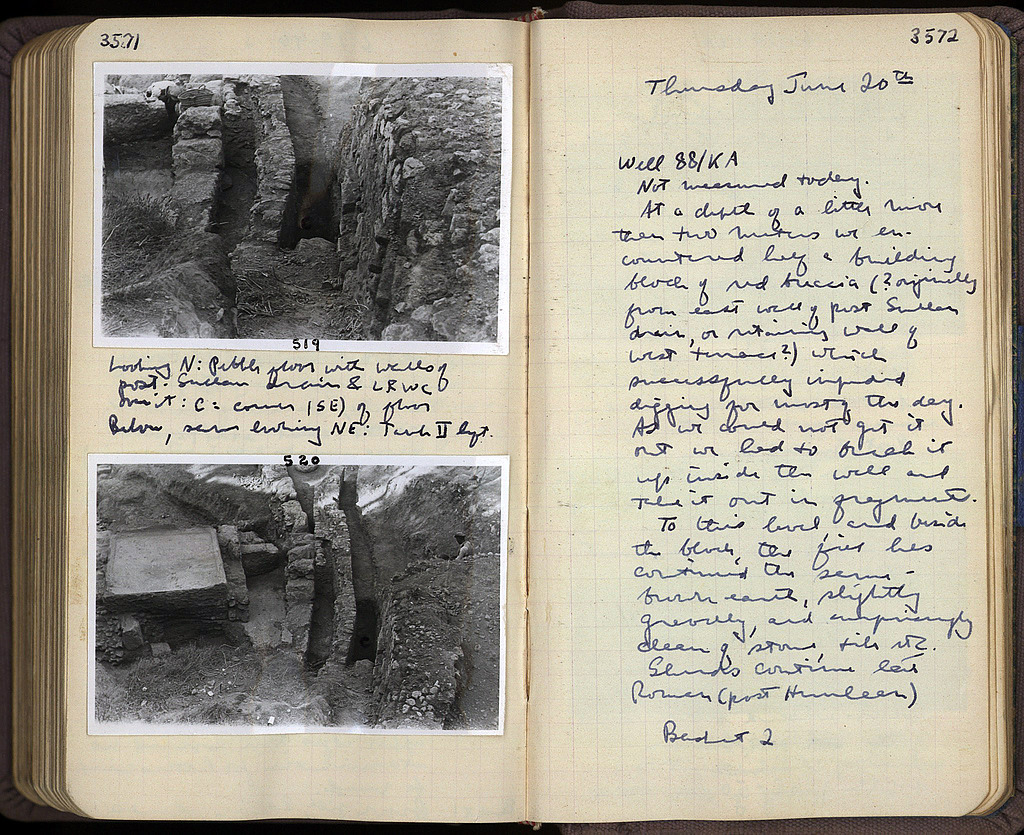 3571
519
Looking N: Pebble floor with walls of
post-Sullan drain & LRWC
over it: C = corner (SE) of floor
Below, same looking NE: Tank II left.
520
3572
Thursday June 20th
Well 88/KA
Not measured today.
At a depth of a little more
than two meters we en-
countered half a building
block of red breccia (? originally
from east wall of post Sullan
drain, or retaining wall of
west terrace?) which
successfully impeded
digging for most of the day.
As we could not get it
out we had to break it
up inside the well and
take it out in fragments.
To this level and beside
the block, the fill has
continued the same -
brown earth, slightly
gravelly, and surprisingly
clean of stone, tile etc.
Sherds continue late
Roman (post Herulean)
Basket 2